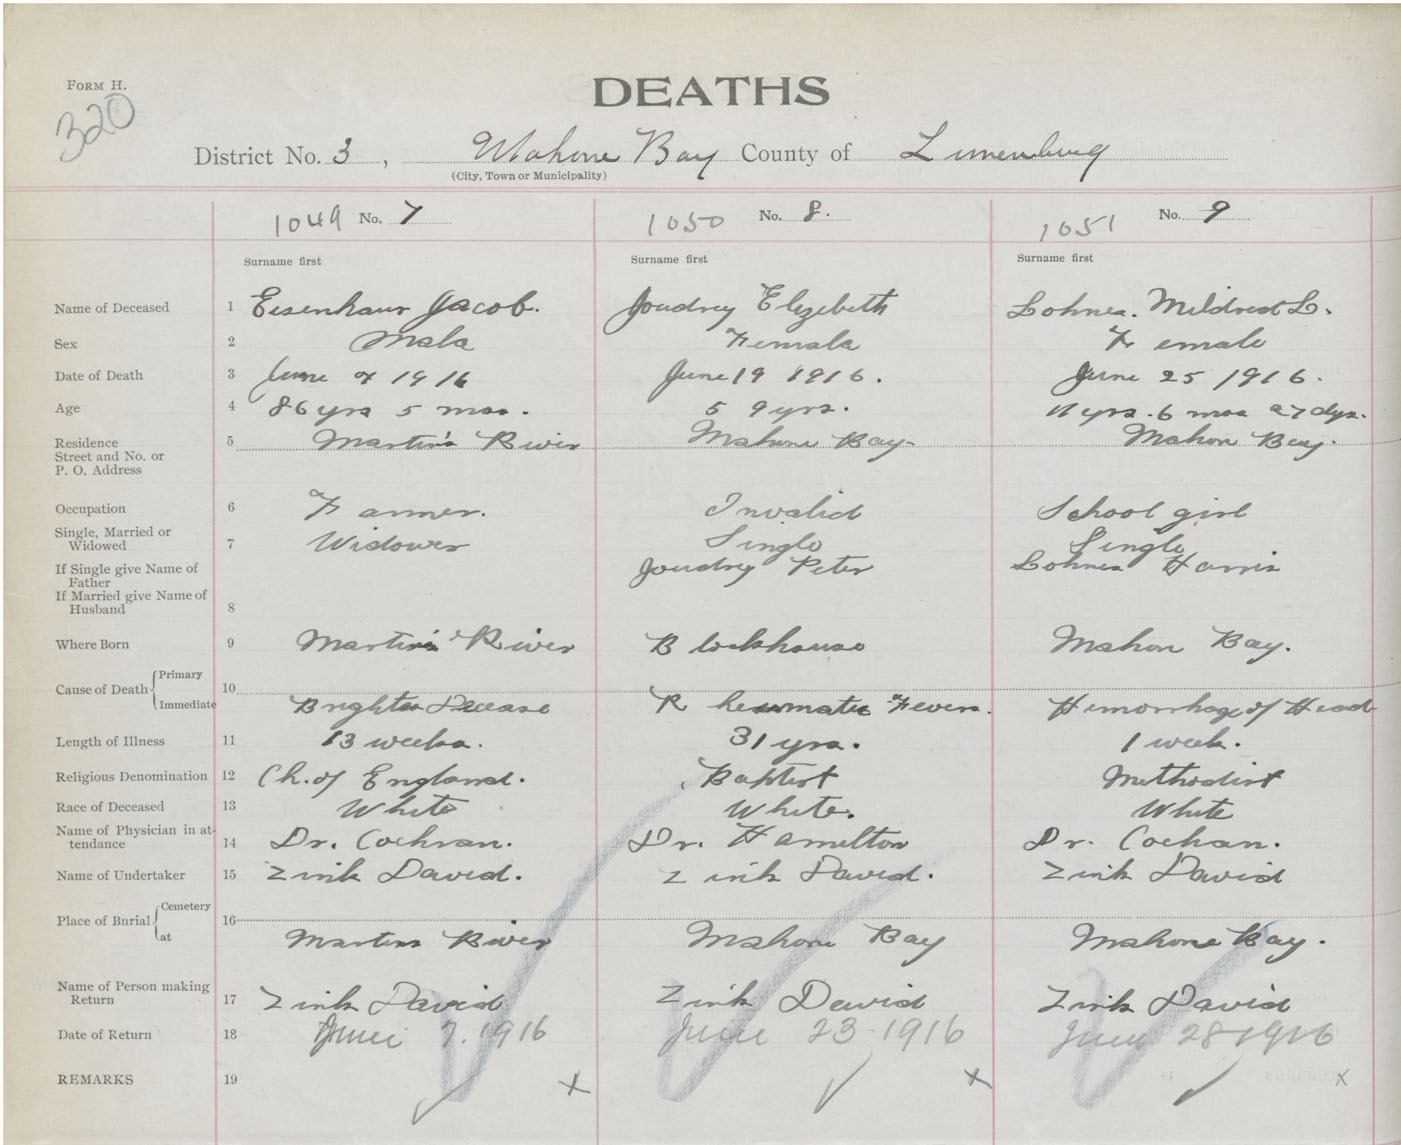 FORM H.
320
DEATHS
District No. 3, Mahone Bay County of Lunenburg
(City, Town or Municipality)
1049 No. 7 1050 No. 8. 1051 No. 9
Surname first Surname first Surname first
Name of Deceased 1 Eisenhaur Jacob. Joudrey Elizebeth Lohnes. Mildred L.
Sex 2 Male Female Female
Date of Death 3 June 1916 June 19 1916. June 25 1916.
Age 4 86 yrs 5 mos. 59 yrs. 11 yrs. 6 mos 27 dys.
Residence 5 Martin's River Mahone Bay. Mahon Bay.
Street and No. or
P. O. Address
Occupation 6 Farmer. Invalid School girl
Single, Married or
Widowed 7 Widower Single Single
If Single give Name of Joudrey Peter Lohnes Harris
Father
If Married give Name of
Husband 8
Where Born 9 Martin's River Blockhouse Mahon Bay.
Primary
Cause of Death 10
Immediate Brights Decease Rheumatic Fever. Hemorrhage of Head
Length of Illness 11 13 weeks. 31 yrs. 1 week.
Religious Denomination 12 Ch. of England. Baptist Methodist
Race of Deceased 13 White White. White
Name of Physician in at-
tendance 14 Dr. Cochran. Dr. Hamilton Dr. Cochan.
Name of Undertaker 15 Zink David. Zink David. Zink David
Cemetery
Place of Burial 16
at Martins River Mahone Bay Mahone Bay.
Name of Person making
Return 17 Zink David Zink David Zink David
Date of Return 18 June 7. 1916 June 23 1916 June 28 1916
REMARKS 19 x x x